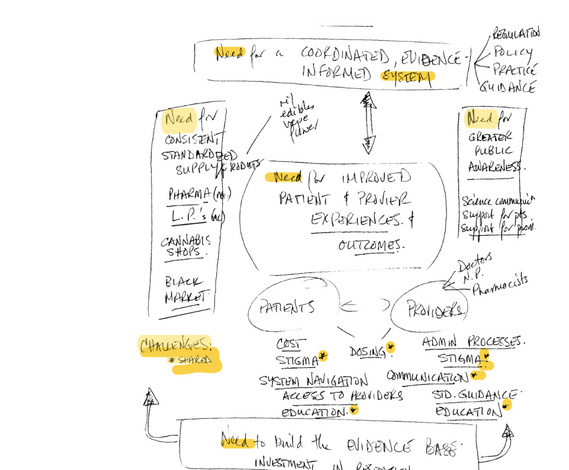 Need for a COORDINATED, EVIDENCE-
INFORMED SYSTEM
REGULATION
POLICY
PRACTICE
GUIDANCE
Need for
CONSISENT
STANDARDIZED
SUPPLY & PRODUCTS
PHARMA
L.P.'s
CANNABIS
SHOPS
BLACK
MARKET
oil
edibles
vape
flower
Need for IMPROVED
PATIENT & PROVIER
EXPERIENCES &
OUTCOMES.
Need for
GREATER
PUBLIC
AWARENESS.
Science communication
Support for pts
Support for
PATIENTS
PROVIDERS
Doctors
N.P.
Pharmacists
CHALLENGES:
* SHARED
COST
STIGMA*
SYSTEM NAVIGATION
ACCESS TO PROVIDERS
EDUCATION.*
DOSING*
ADMIN PROCESSES.
STIGMA*
COMMUNICATION*
STD. GUIDANCE.
EDUCATION*
Need to build the EVIDENCE BASE.
INVESTMENT IN RESEARCH